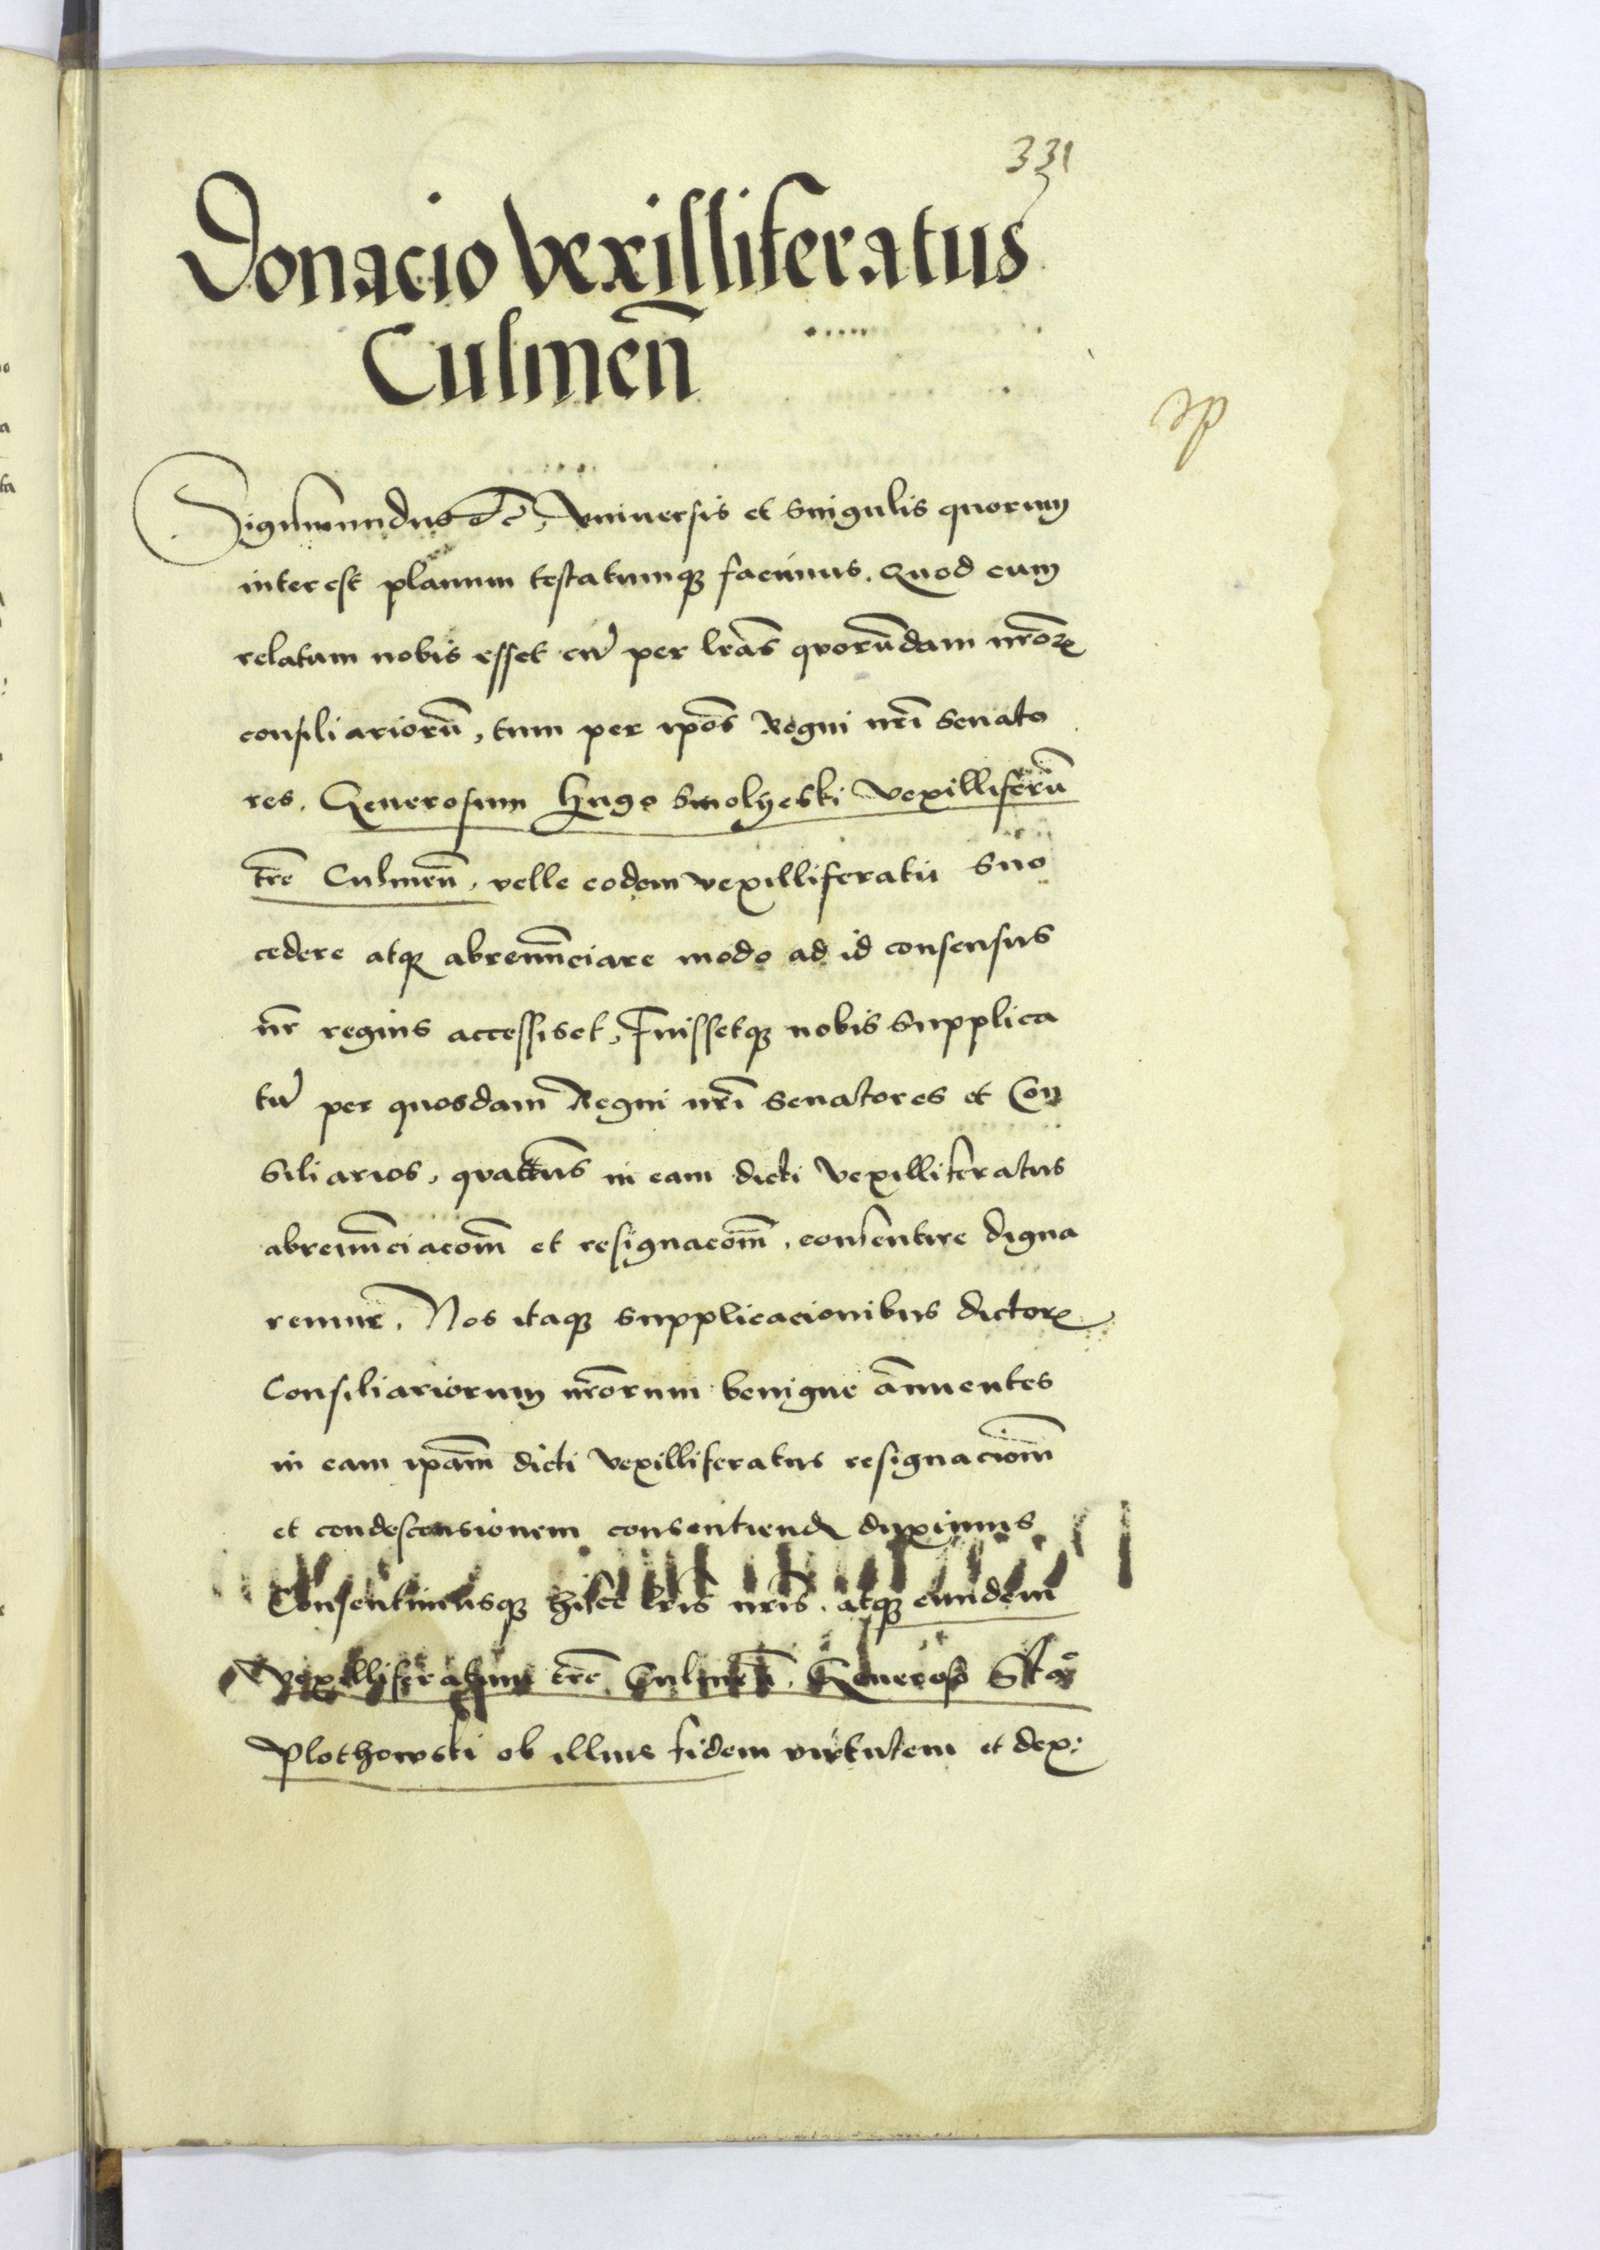 331
Donacio vexilliferatus
Culmen̄
Sigismundus etc̄, Vniuersis et singulis quorum
interest planum testatumq facimus. Quod cum
relatum nobis esset cū per lr̄as quorūdam nr̄or
consiliariorū, tum per ip̄os Regni nr̄i senato
res. Generosum Hugo Smolyeski vexilliferū
tr̄e Culmen̄. velle eodem vexilliferatu suo
cedere atq abrenūciare modo ad id consensus
nr̄ regius accessiset, Fuissetq nobis supplica
tū per quosdam Regni nr̄i senatores et Con
siliarios, quat̄us in eam dicti vexilliferatus
abrenūciacōm et resignacōm, consentire digna
remur. Nos itaq supplicacionibus dictor
Consiliariorum nr̄orum benigne ānuentes
in eam ip̄am dicti vexilliferatus resignaciōm
et condescensionem consentiend duximus
Consentimusq hisce lr̄is nr̄is. atq eundem
vexilliferatum tr̄e Culmen̄. Generoso Sta
Plothowski ob illius fidem virtutem et dex: